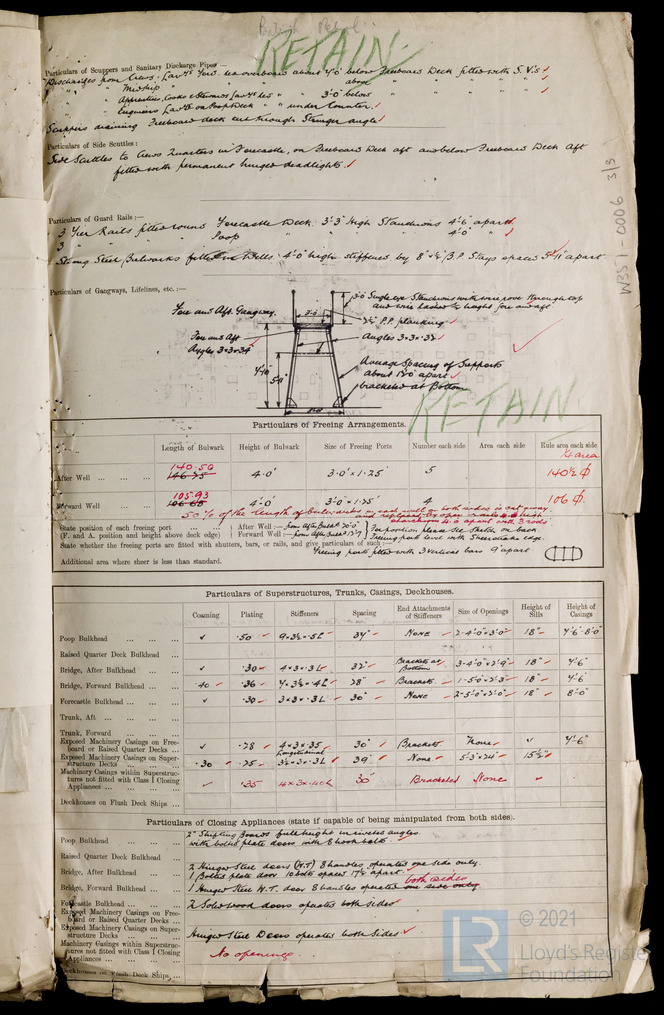 RETAIN
Particulars of Scuppers and Sanitary Discharge Pipes —
Discharges from Crews Lav'ys Fwd led overboard about 4'-0" below Freeboard Deck fitted with S.V's
" " Midship " " " above " " " "
" " Apprentices, Cooks & Stewards Lav'ys led " 3'-0" below " " "
" " Engineers Lav'y on Poop Deck " " under Counter.
Scuppers draining Freeboard deck cut through Stringer angle
Particulars of Side Scuttles :
Side Scuttles to Crews Quarters in Forecastle, on Freeboard Deck aft and below Freeboard Deck Aft
fitted with permanent hinged deadlights.
W351-0006 3/3
Particulars of Guard Rails :—
3 Tier Rails fitted round Forecastle Deck. 3'-3" High Stanchions 4'-6" apart
3 " " " Poop " " " 4'-0" "
Strong Steel Bulwarks fitted in Wells 4'-0" high stiffened by B.P. Stays spaced 5'-11" apart
Particulars of Gangways, Lifelines, etc. :—
Fore and Aft Gangway.
3'-0 Single eye Stanchions with wire rove through top
and wire half height fore and aft
2½" P.P. planking
Fore and Aft
Angles 3×3×34
Angles 3×3×.32
4'-10
5'-11"
Average Spacing of Supports
about 12'-0" apart
bracketed at Bottom
RETAIN
Particulars of Freeing Arrangements.
Length of Bulwark Height of Bulwark Size of Freeing Ports Number each side Area each side Rule area each side
½ area
140.50
After Well ... ... ... 146.75 4'.0" 3'.0" × 1'.25" 5 140½
105.93
Forward Well ... ... 106.65 4'-0" 3'-0" × 1'.25" 4 106
50% of the length of bulwarks in each well on both sides is cut away
and replaced by open rails 4'-0" high
stanchions 4'.6 apart with 3 rods
State position of each freeing port ... ... After Well :— from After Bulkd 20'-0"
(F. and A. position and height above deck edge) Forward Well :— from After Bulkd 13'-7"
For position please see sketch on back
Freeing port level with Sheerstrake edge.
State whether the freeing ports are fitted with shutters, bars, or rails, and give particulars of such :—
Freeing ports fitted with 3 vertical bars 9" apart
Additional area where sheer is less than standard.
Particulars of Superstructures, Trunks, Casings, Deckhouses.
Coaming Plating Stiffeners Spacing End Attachments of Stiffeners Size of Openings Height of Sills Height of Casings
Poop Bulkhead ... ... ... .50 9×3½×.5L 34" NONE 2-4'.0"×3'.0" 18" 7'6"-8'0"
Raised Quarter Deck Bulkhead ...
Bridge, After Bulkhead ... ... .30 4×3×.3L 32" Brackets at Bottom 3-4'.0"×2'.9" 18" 7'6"
Bridge, Forward Bulkhead ... ... .40 .36 7×3½×.4L 28" Brackets 1-5'.0"×2'.3" 18" 7'6"
Forecastle Bulkhead ... ... ... .30 3×3×.3L 30" None 2-5'.0"×2'.0" 18" 8'-0"
Trunk, Aft ... ... ... ...
Trunk, Forward ... ... ...
Exposed Machinery Casings on Freeboard or Raised Quarter Decks ... .28 4×3×.35 30" Brackets None 7'-6"
Exposed Machinery Casings on Superstructure Decks ... ... .30 .25 Longitudinal 3½×3×.3L 39" None 5'-3"×24" 15½"
Machinery Casings within Superstructures not fitted with Class I Closing Appliances ... ... .35 4×3×.40L 30" Bracketed None
Deckhouses on Flush Deck Ships ...
Particulars of Closing Appliances (state if capable of being manipulated from both sides).
Poop Bulkhead ... ... ... 2" Shifting Boards full height in riveted angles.
with bolted plate doors with 8 hookbolts.
Raised Quarter Deck Bulkhead ...
Bridge, After Bulkhead ... ... 2 Hinged Steel doors (W.T) 8 handles, operated one side only.
1 Bolted plate door 10 bolts spaced 17½" apart.
both sides
Bridge, Forward Bulkhead ... ... 1 Hinged Steel W.T. door 8 handles operated one side only
Forecastle Bulkhead ... ... ... 2 Solid wood doors operated both sides
Exposed Machinery Casings on Freeboard or Raised Quarter Decks ...
Exposed Machinery Casings on Superstructure Decks ... ... Hinged Steel Doors operated both Sides
Machinery Casings within Superstructures not fitted with Class I Closing Appliances ... ... No openings.
Deckhouses on Flush Deck Ships ...
LR
© 2021
Lloyd's Register
Foundation